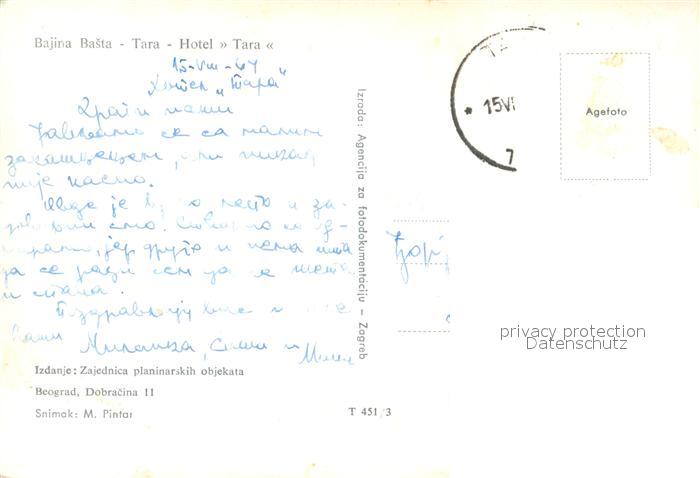 Bajina Bašta - Tara - Hotel » Tara «
15-VIII-67
Хотел „Тара"
Драги наши
Јављамо се са малим
закашњењем, али никад
није касно.
Овде је место и за-
смо.
, јер друго и нема шта
да се ради сем да се шета
и спава.
Поздрављају вас
ваши Миланка, и
Izdanje: Zajednica planinarskih objekata
Beograd, Dobračina 11
Snimak: M. Pintar
T 451/3
Izroda: Agencija za fotodokumentaciju - Zagreb
15VI
7
Agefoto
privacy protection
Datenschutz